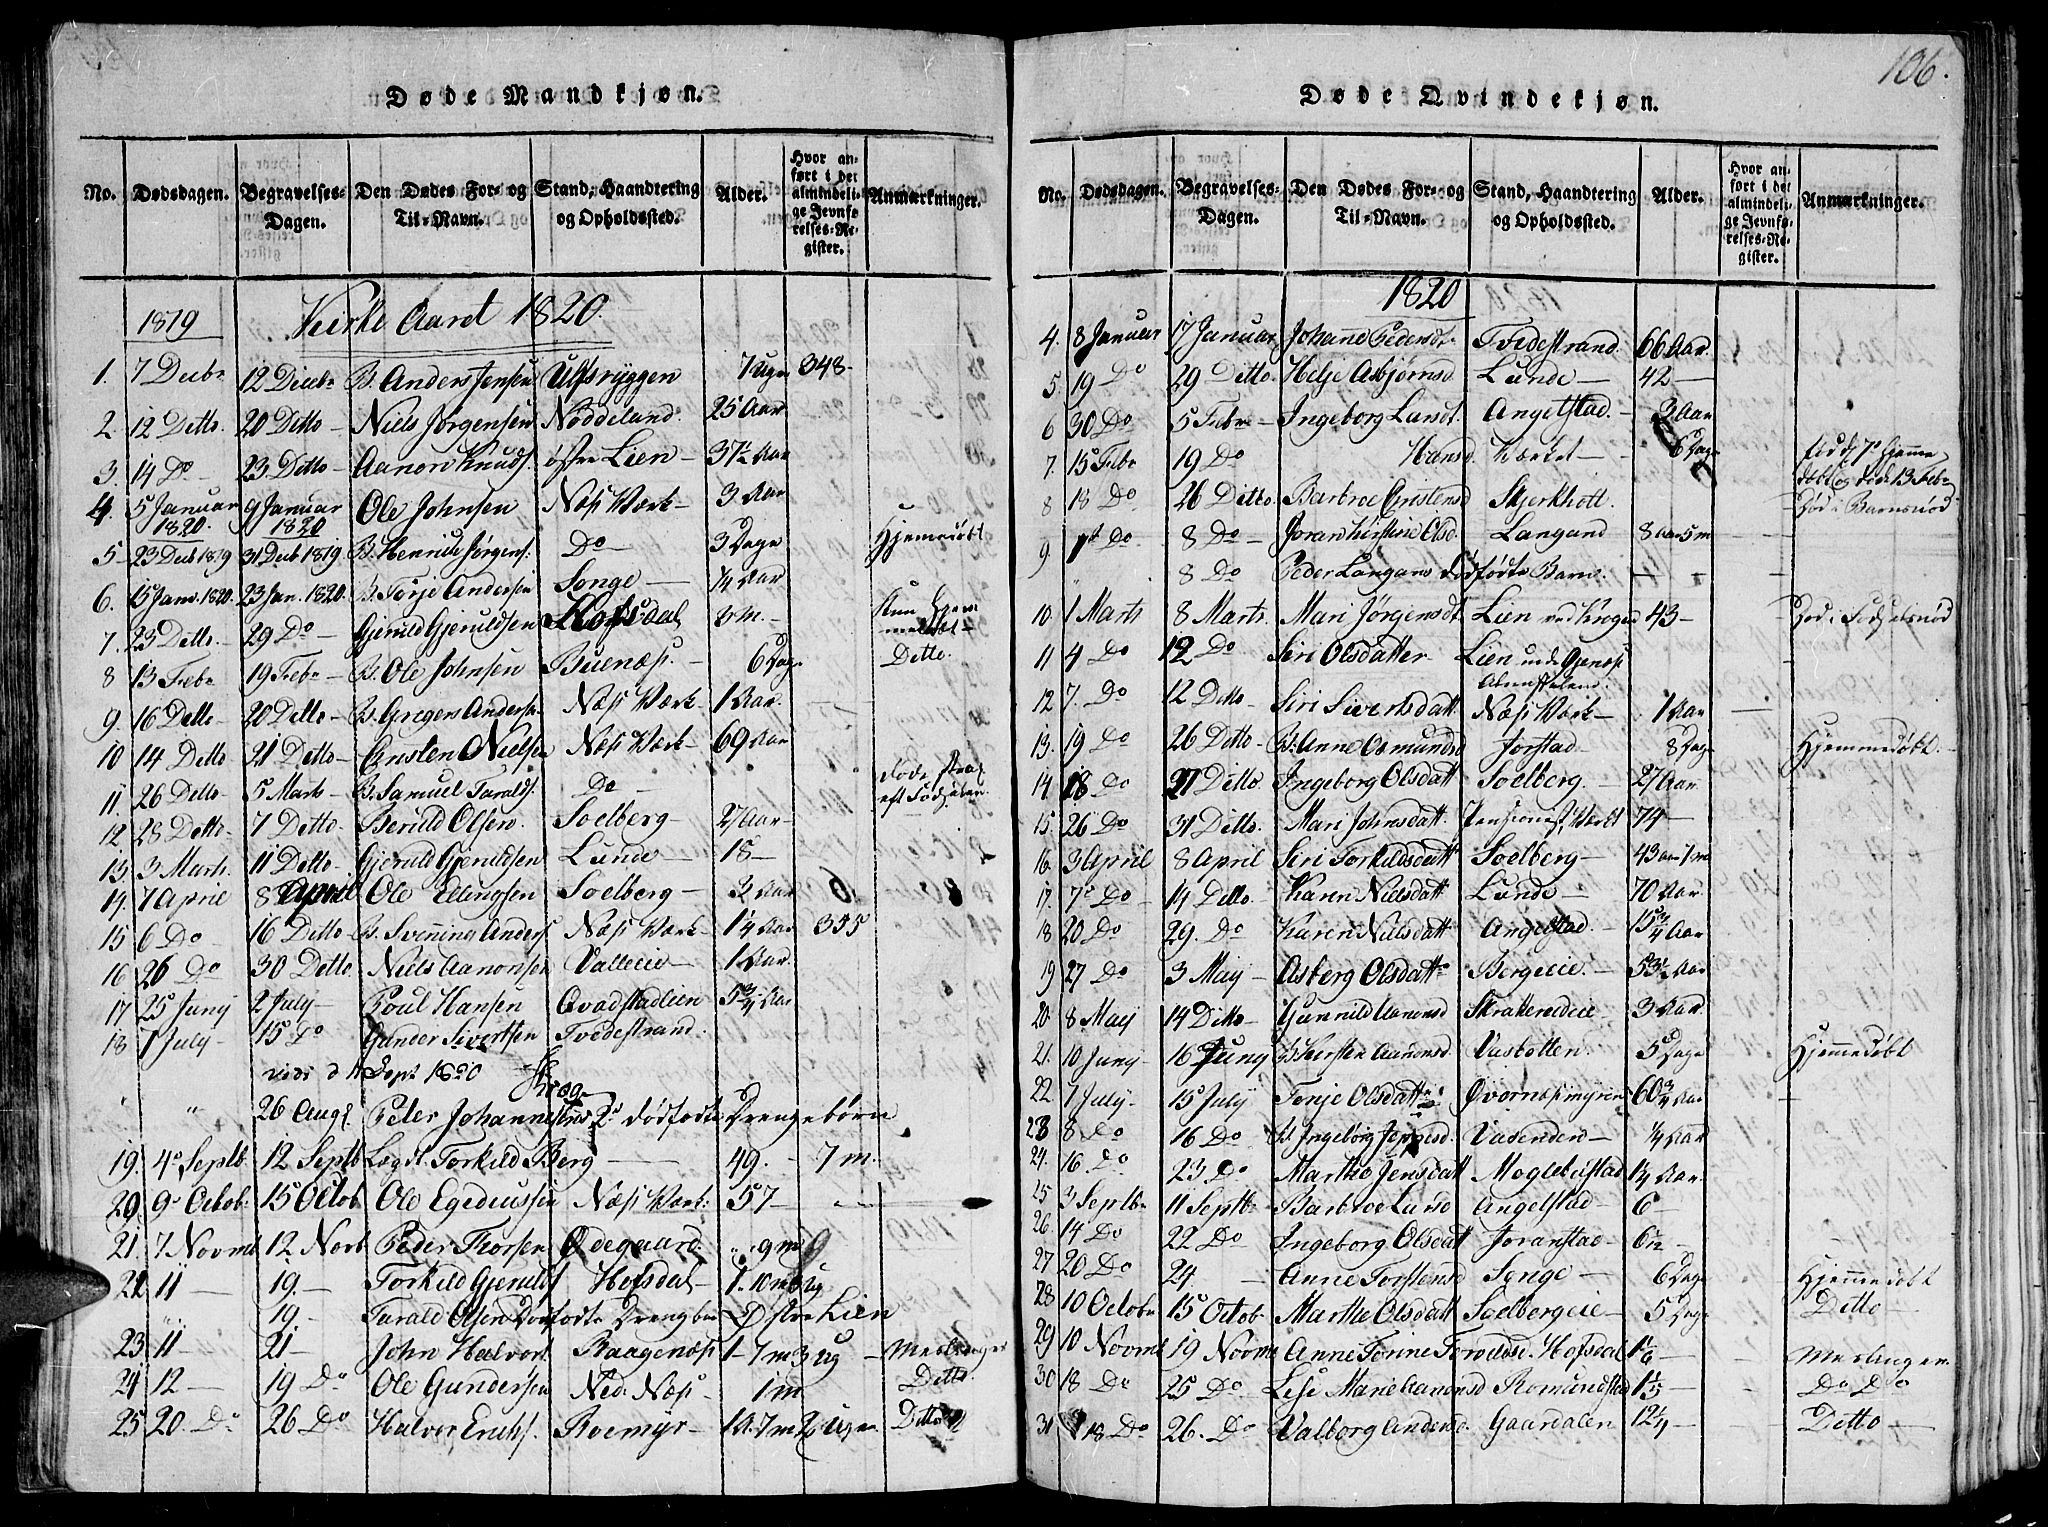 106.
Døde Mandkjøn.
No. Dødsdagen. Begravelses-Dagen. Den Dødes For- og Til-Navn. Stand, Haandtering og Opholdssted. Alder. Hvor anført i det almindelige Jevnførelses-Register. Anmærkninger.
1819 Kirke Aaret 1820
1. 7 Decbr 12 Decbr B. Anders Jensen Ulfsryggen 7 Uger 348
2. 12 Ditto. 20 Ditto Niels Jørgensen Nøddeland 25 Aar
3. 14 Do 23 Ditto Aanon Knuds. østre Lien 37½ Aar
4. 5 Januar 1820. 9 Januar 1820 Ole Johnsen Næss Værk 3 Aar
5 23 Decb 1819 31 Decb 1819 B. Henrich Jørgens. Do 3 Dage Hjemmedøbt
6. 15 Janv. 1820. 23 Jan. 1820. B. Terje Andersen Songe ¼ Aar
7. 23 Ditto. 29 Do Gjeruld Gjeruldsen Hofsdal 3 m. Kun hjemmedøbt
8 13 Febr 19 Febr B. Ole Johnsen Buenæs 6 Dage Ditto.
9. 16 Ditto 20 Ditto B. Gregers Anders. Næss Værk 1 Aar.
10 14 Ditto 21 Ditto Ansten Nielsen Næss Værk 69 Aar
11. 26 Ditto 5 Marts B. Samuel Taralds. Do døde strax eft Fødselen
12 28 Ditto 7 Ditto Beruld Olsen Soelberg 27 Aar
13. 3 Marts 11 Ditto Gjeruld Gjeruldsen Lunde 18
14. 7 April 8 April Ole Ellingsen Soelberg 3 Aar
15 6 Do 16 Ditto B. Svenning Anders Næss Værk 1¼ Aar 355
16 26 Do 30 Ditto Niels Aanonsen Valleeie 1 Aar.
17 25 Juny 2 July Poul Hansen Qvadstadlien 5¾ Aar
18 1 July 15 Do Gunder Sivertsen Tvedestrand
vidi d 11 Sept 1820 Krog
" " 26 Aug. Peter Johannesens 2 dødfødte Drengebørn
19. 4 Septb 12 Septb Torkild Berg 49. 7 m.
20 9 Octob. 15 Octob Ole Egediussen Næss Værk 57
21. 7 Novmb 12 Novb Peder Thorsen Ødegaard. 9 m
22 11 19. Torkild Gjerulds Hofsdal 1. 10 m 3 ug
19. Tarald Olsen Dødfødte Drengbarn Østre Lien
23 11 21 John Halvors. Raagenæs 1-7 m 3 ug Meslinger
24 12 19 Do Ole Gundersen Ned. Næs 1 m Ditto
25 20. Do 26 Do Halvor Ericks. Roemyr 1 A. 7 m 2 Uger Ditto
Døde Qvindekjøn.
No. Dødsdagen. Begravelses-Dagen. Den Dødes For- og Til-Navn. Stand, Haandtering og Opholdssted. Alder. Hvor anført i det almindelige Jevnførelses-Register. Anmærkninger.
1820
4. 8 Januar 17 Januar Johanne Pedersd. Tvedestrand 66 Aar.
5 19 Do 29 Ditto Helje Asbjørnsd Lunde 42
6 30 Do 5 Febr Ingeborg Landt. Angelstad. 3 Aar
7. 15 Febr 19 Do Hansd. Værket 6 Dage født 7 hjemmedøbt og døde 13 Febr
8 18 Do 26 Ditto Barbroe Cristensd Stjerkholt Død i Barnsnød
9 1 Do 8 Do Joran Kirstine Olsd. Langand 8 aar 5 m
" 8 Do Peder Langans dødfødte Barn.
10. 1 Marts 8 Marts Mari Jørgensdt. Lien ved Krogen 43 Død i Fødselsnød
11 4 Do 12 Do Siri Olsdatter Lien und. Gjenæs Almisselem.
12 7. Do 12 Ditto Siri Sivertsdatt Næss Værk 1 Aar
13. 19 Do 26 Ditto B. Anne Osmundsd Jorstad 8 Dage Hjemmedøbt.
14 18 Do 27 Ditto Ingeborg Olsdatt Soelberg. 27 Aar
15. 26 Do 31 Ditto. Mari Johnsdatt Pensionist, Værket 74
16. 3 April 8 April Siri Torkildsdatt Soelberg 43 aar 1 m
17. 7 Do 14 Ditto. Karen Nielsdatt Lunde 70 Aar
18 20 Do 29. Do Karen Nielsdatt Angelstad. 15¾ Aar
19 27 Do 3 Maij Asberg Olsdatt Bergeeie. 53½ Aar
20 8 Maij 14 Ditto Gunnild Aanonsd Skatteredeie 3 Aar
21. 10 Juny 16 Juny B. Kirsten Aanonsd. Vasbotten. 5 Dage Hjemmedøbt
22 1 July 15 July Terje Olsdatt Øvernæsmyren 60¾ Aar
23 8 Do 16 Do B. Ingebørg Jeppesd. Vasenden ¼ Aar
24. 16. Do 23 Do Marthe Jensdatt Moglebustad 1¼ Aar.
25 3 Septbr 11 Septbr Barbroe Lund Angelstad 6
26. 14 Do 22 Do Ingeborg Olsdatt Joranstad
27 20 Do 24 Anne Torstensd Songe 6 Dage Hjemmedøbt
28 10 Octobr 15 Octobr Marthe Olsdatt Soelbergeie 5 Dage Ditto
29 10 Novmb 19 Novmb Anne Torine Toruldsd. Hofsdal 1⅙ Meslingen
30 18 Do 25 Do Lise Marie Aanonsd Romundstad 1⅓ Do Do
31 18 Do 26. Do Valborg Andersd. Gaardalen 12¼ Ditto